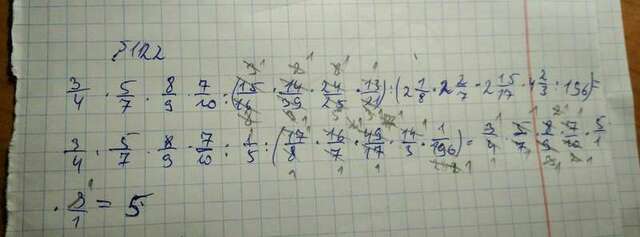 №1122
3/4 · 5/7 · 8/9 · 7/10 : (15/16 · 14/39 · 24/25 · 13/21) : (2 1/8 · 2 2/7 · 2 15/17 · 4 2/3 : 196) =
3/4 · 5/7 · 8/9 · 7/10 : 1/5 : (17/8 · 16/7 · 49/17 · 14/3 · 1/196) = 3/4 · 5/7 · 8/9 · 7/10 · 5/1
· 3/1 = 5